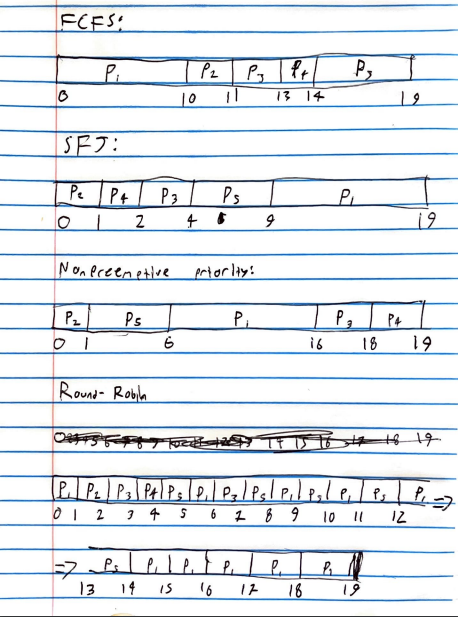 FCFS:
P1 P2 P3 P4 P3
0 10 11 13 14 19
SFJ:
P2 P4 P3 P5 P1
0 1 2 4 9 19
Nonpreemptive priority:
P2 P5 P1 P3 P4
0 1 6 16 18 19
Round-Robin
P1 P2 P3 P4 P5 P1 P3 P5 P1 P5 P1 P5 P1 =>
0 1 2 3 4 5 6 7 8 9 10 11 12
=> P5 P1 P1 P1 P1 P1
13 14 15 16 17 18 19